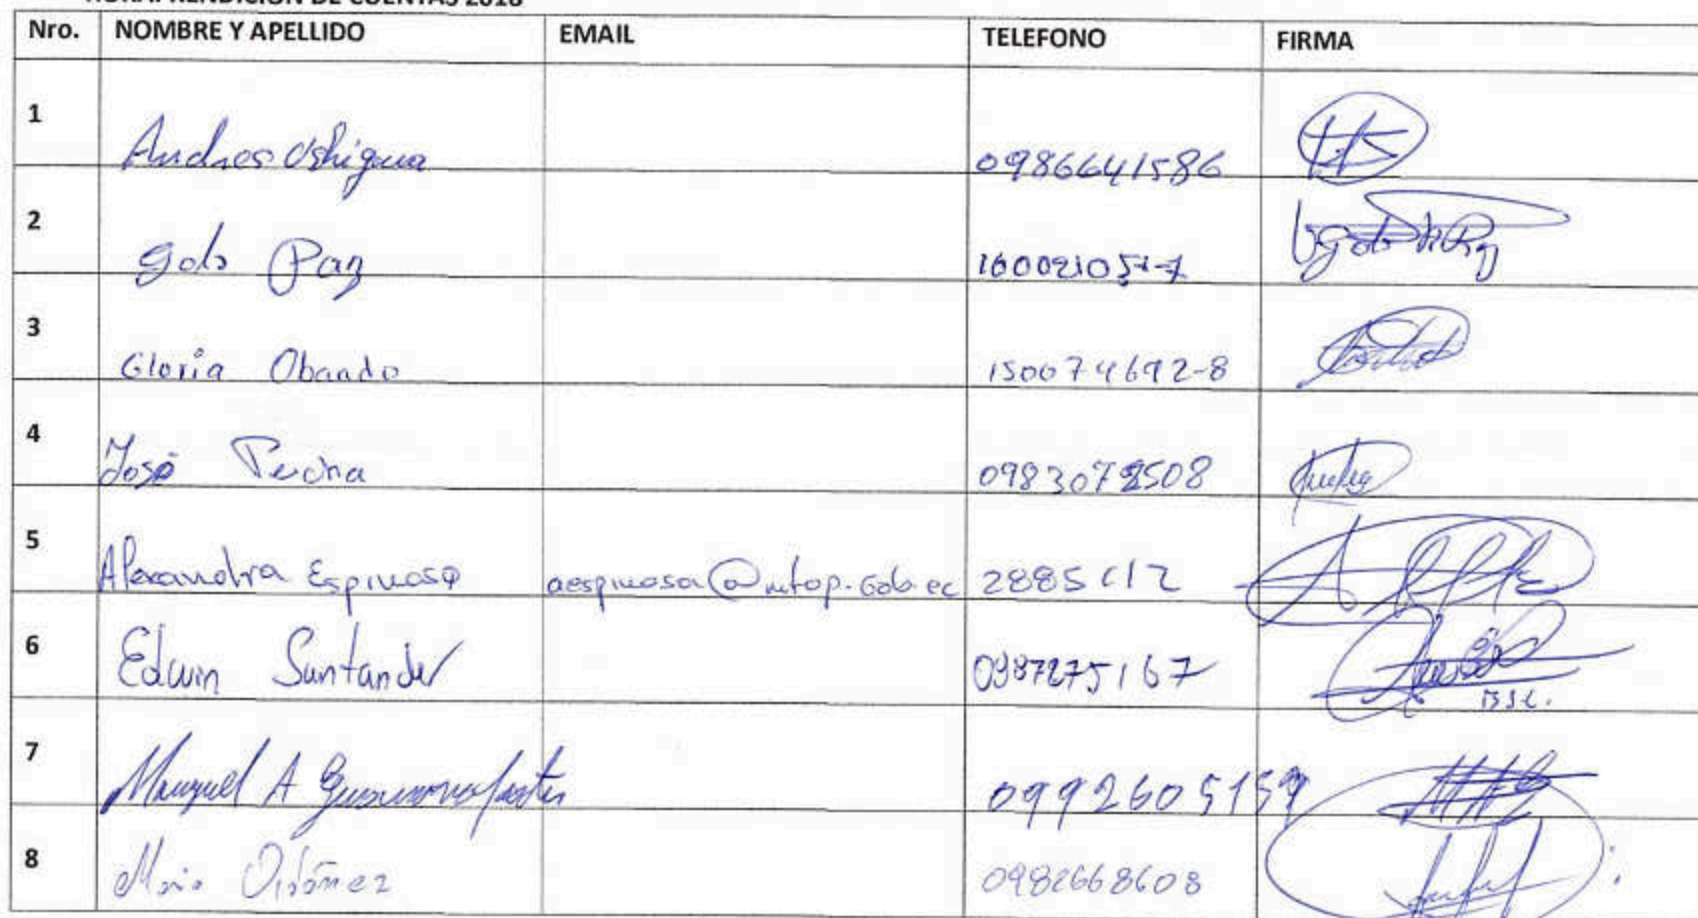 RENDICION DE CUENTAS 2018
Nro. NOMBRE Y APELLIDO EMAIL TELEFONO FIRMA
1 Andres Ushigua 0986641586
2 Galo Paz 160021051-7
3 Gloria Obando 150074692-8
4 José 0983072508
5 Alexandra Espinosa aespinosa@mtop.gob.ec 2885112
6 Edwin Santander 0987275167
7 Manuel A 0992605159
8 Ordóñez 0982668608